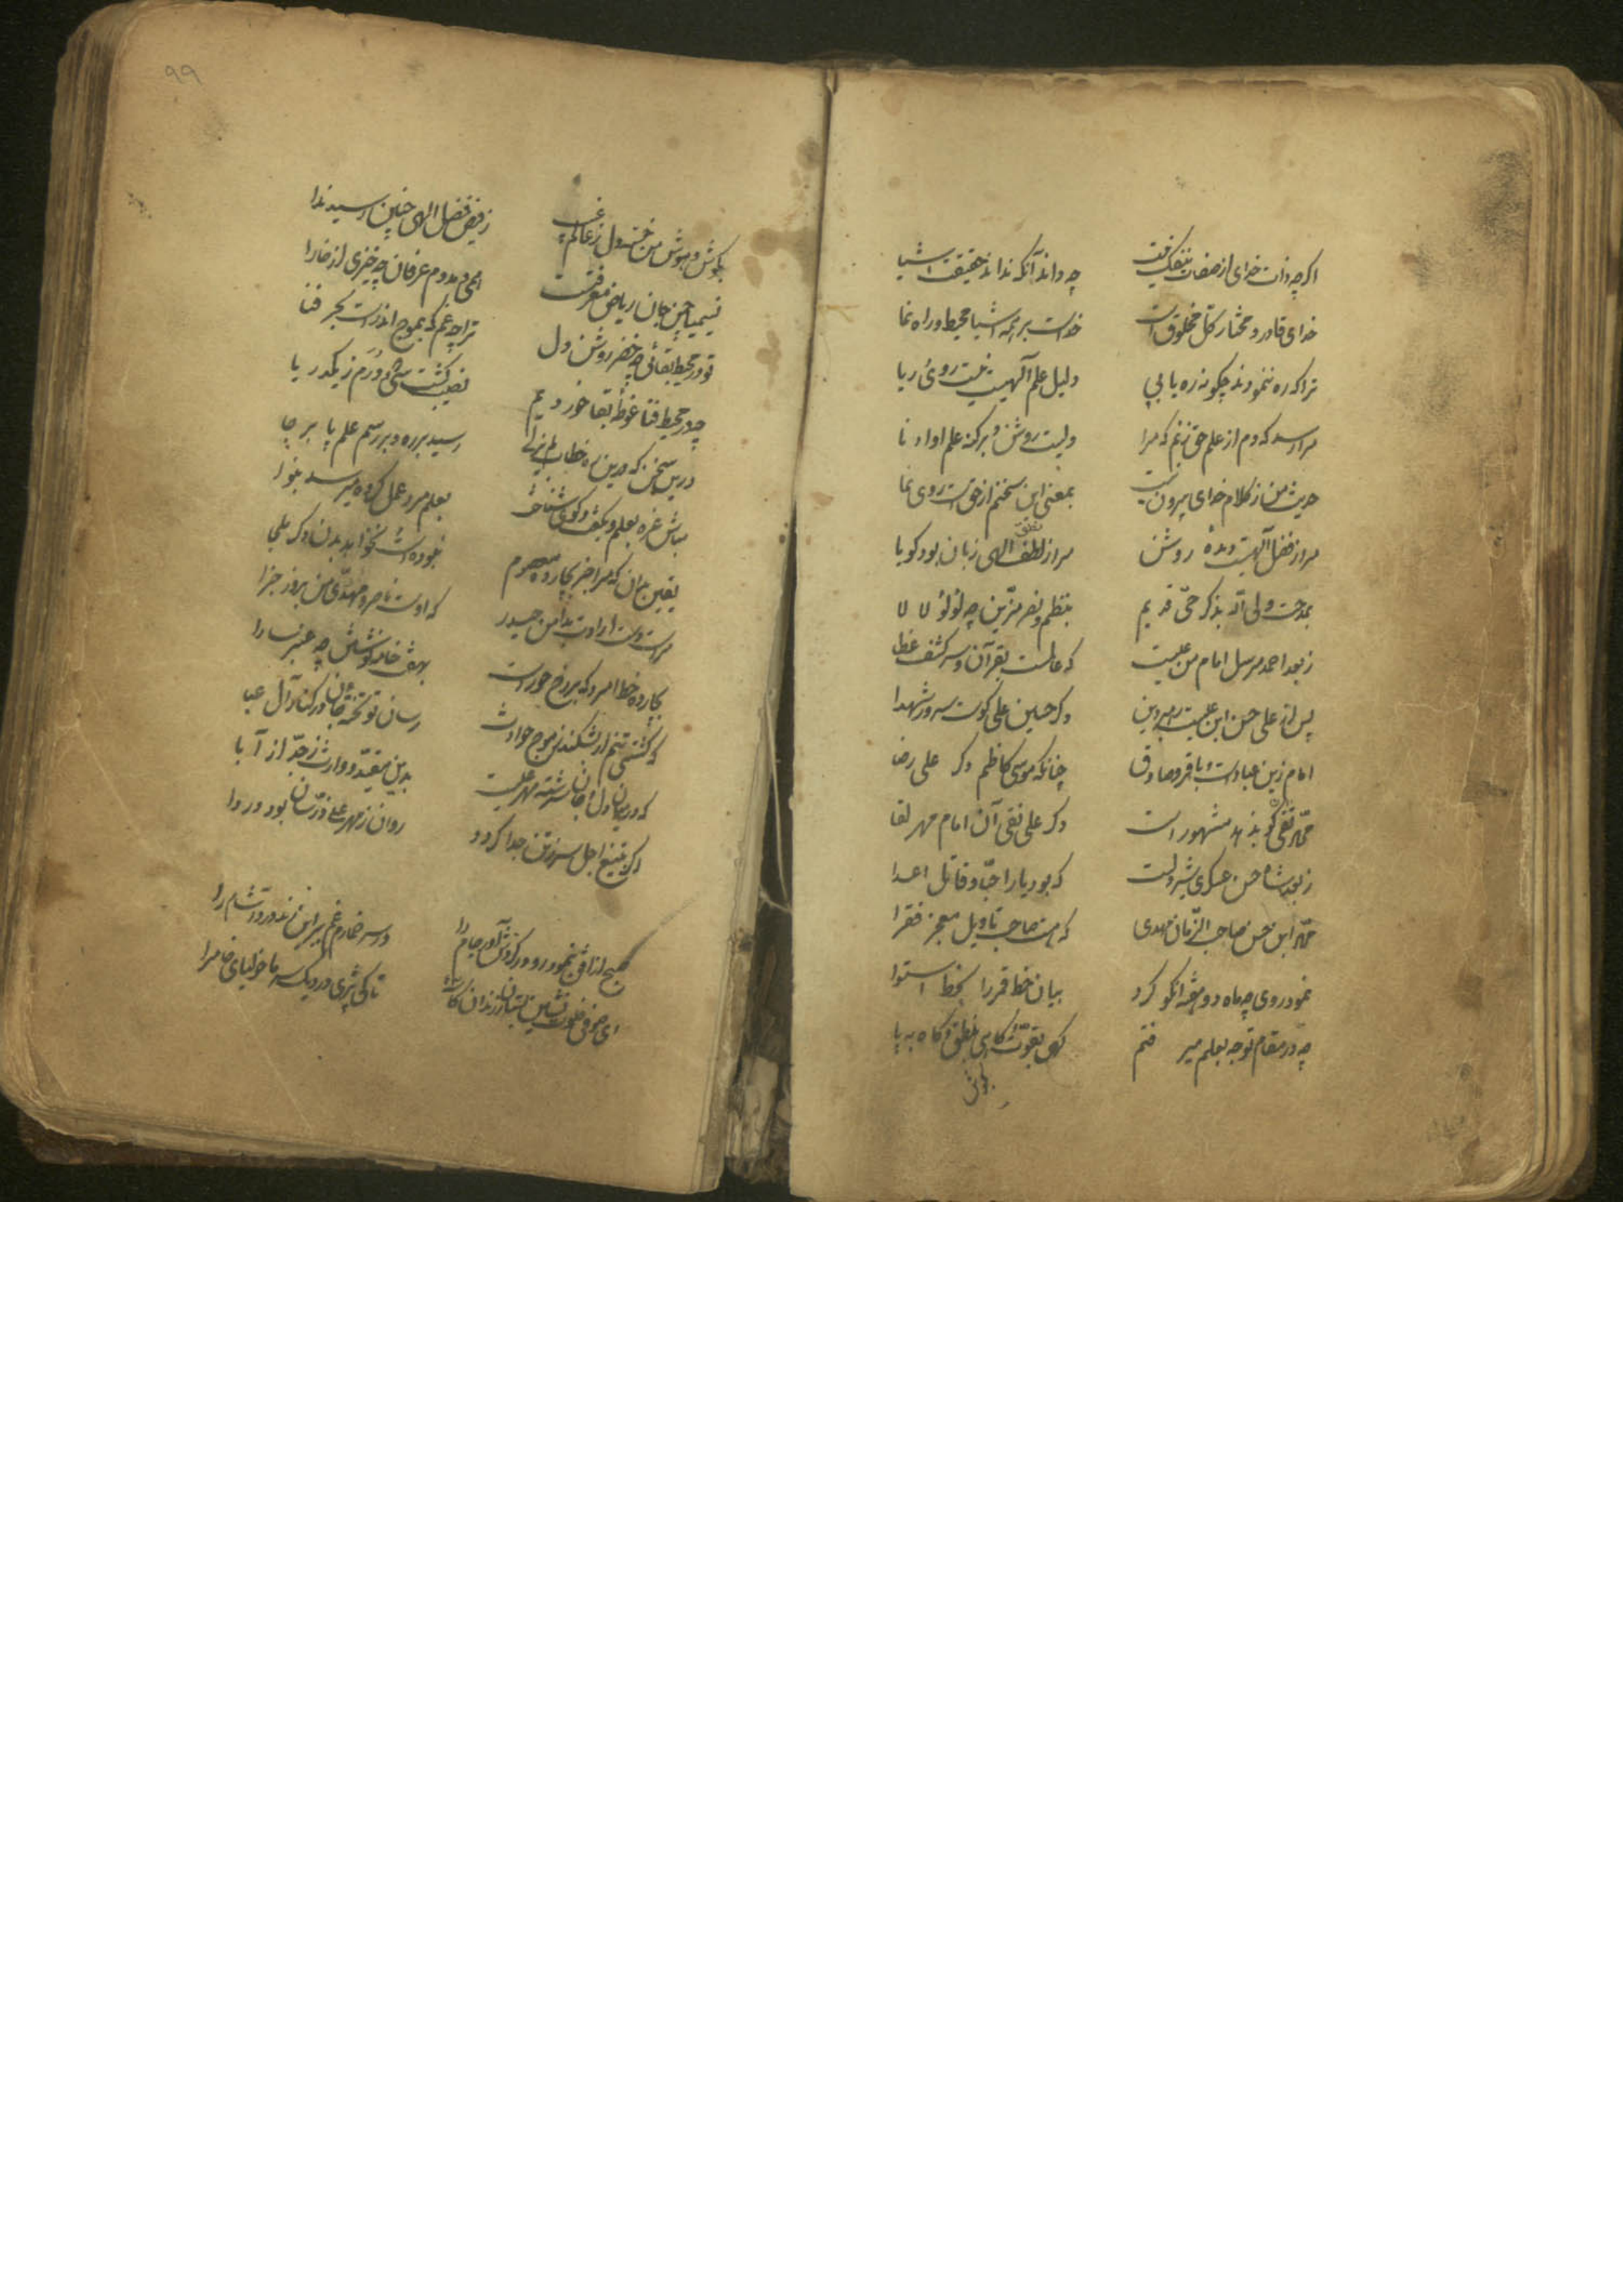 اگرچه ذات خدای از صفات منفک نیست چه داند آنکه نداند حقیقت اشیا
خدای قادر و مختار کل مخلوق است خداست بر همه اشیا محیط و راه نما
ترا که ره ننمودند چگونه ره یابی دلیل علم آلهیت نیست روی ریا
مرا رسد که دم از علم حق زنم که مرا دلیست روشن و بر کنه علم او دانا
حدیث من ز کلام خدای بیرون نیست بمعنی این سخنم از حق است روی نما
مرا ز فضل آلهیت دیدهٔ روشن مرا ز لطف الهی زبان بود گویا
بمدحت ولی الله بذکر حی قدیم بنظم و نثر مزین چه لؤلؤ لالا
ز بعد احمد مرسل امام من علیست که عالمست بقرآن و سر کشف غطا
پس از علی حسن ابن علیست رهبر دین دگر حسین علی کوست سرور شهدا
امام زین عباد است و باقر و صادق چنانکه موسی کاظم دگر علی رضا
محمد تقی کو بزهد مشهور است دگر علی نقی آن امام مهر لقا
ز بعد شاه حسن عسکری شیر دلست که بود یار احبا و قاتل اعدا
محمد ابن حسن صاحب الزمان مهدی که هست صاحب تاویل معجز فقرا
نمود روی چه ماه دو هفته انکو کرد بیان خط قمر را بخط استوا
چه در مقام توجه بعلم میر فتم گهی بقوت
بگوش
۹۹
بگوش و هوش من خسته دل ز عالم غیب ز فیض فضل الهی چنین رسید ندا
نسیمیا چمن جان ریاض معرفتست
تو در محیط بقائی چه خضر روشن دل ترا چه غم که بموج اندرست بحر فنا
چه در محیط فنا غوطهٔ بقا خوردیم نصیب گشت
رسید بر ره و بر رسم علم پا بر جا
مباش غره بعلم و بکفت و کوی بعلم مرد عمل کرده میرسد بنوا
یقین بدان که مرا جز بچارده معصوم نبوده است نخواهد بدن دگر ملجا
مراست دست ارادت بدامن حیدر که اوست ناصر و مهدی من بروز جزا
بچارده خط امرد که بر رخ حوراست بهفت خال
که کشتی تنم ار بشکند ز موج حوادث رسان تو تختهٔ جان در کنار آل عبا
که در میان دل و جان سرشته مهر علیست بدین مقید و وارث ز جد از آبا
اگر بتیغ اجل سر ز تن جدا گردد روان ز مهر علی
صبح از افق بنمود رو در گردش آور جام را در سر خمار غم
ای صوفی خلوت نشین بستان ز رندان کاسهٔ تا کی پزی در دیک سر ماخولیای خام را